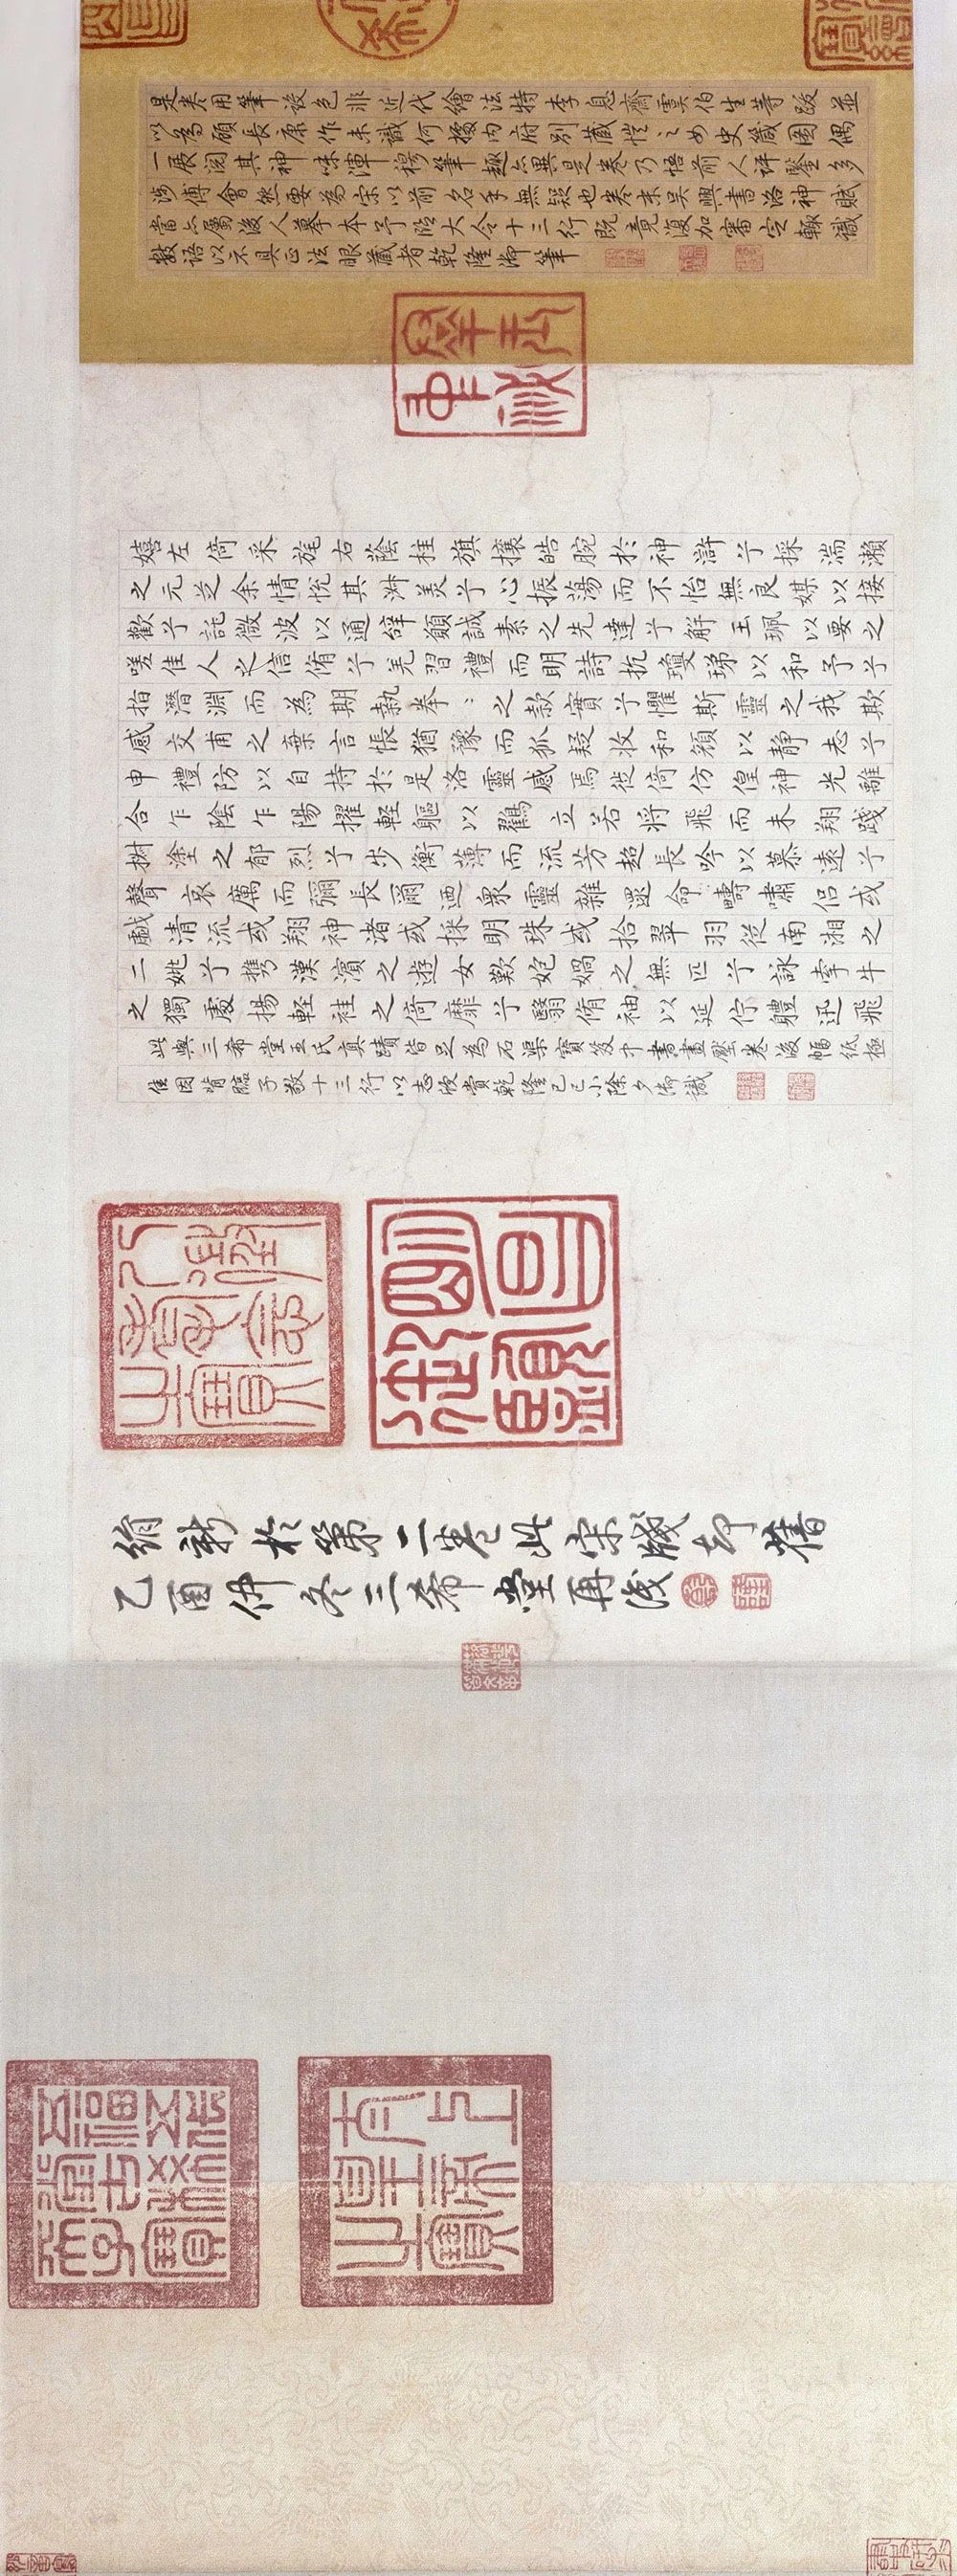 是卷用筆設色非近代繪法特李息齋虞伯生等跋並
以為顧長康作未識何據內府別藏愷之女史箴圖偶
一展閱其神味渾穆筆趣亦異是卷乃悟前人評鑒多
涉傅會然要為宋以前名手無疑也卷末吳興書洛神賦
當亦屬後人摹本予臨大令十三行既竟復加審定輒識
數語以示具正法眼藏者乾隆御筆
嬉左倚采旄右蔭桂旗攘皓腕於神滸兮採湍瀨
之元芝余情悅其淑美兮心振蕩而不怡無良媒以接
歡兮託微波以通辭願誠素之先達兮解玉珮以要之
嗟佳人之信脩兮羌習禮而明詩抗瓊珶以和予兮
指潛淵而為期執拳〻之款實兮懼斯靈之我欺
感交甫之棄言悵猶豫而狐疑收和顏以靜志兮
申禮防以自持於是洛靈感焉徙倚仿偟神光離
合乍陰乍陽擢輕軀以鶴立若將飛而未翔踐
椒塗之郁烈兮步衡薄而流芳超長吟以慕遠兮
聲哀厲而彌長爾迺衆靈雜遝命疇嘯侶或
戲清流或翔神渚或採明珠或拾翠羽從南湘之
二姚兮攜漢濱之遊女歎匏媧之無匹兮詠牽牛
之獨處揚輕袿之倚靡兮翳脩袖以延佇體迅飛
此與三希堂王氏真蹟皆足為石渠寶笈中書畫壓卷後幅紙極
佳因背臨子敬十三行以志欣賞乾隆己巳小除夕御識
八徵耄念之寶
絹新於第二卷此宋牋却舊
乙酉仲冬三希堂再識
五福五代堂古稀天子寶
太上皇帝之寶